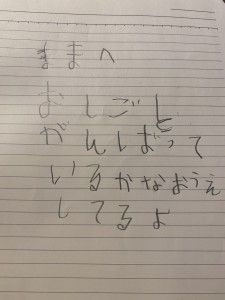 ままへ
おしごと
がんばって
いるかなおうえ
してるよ